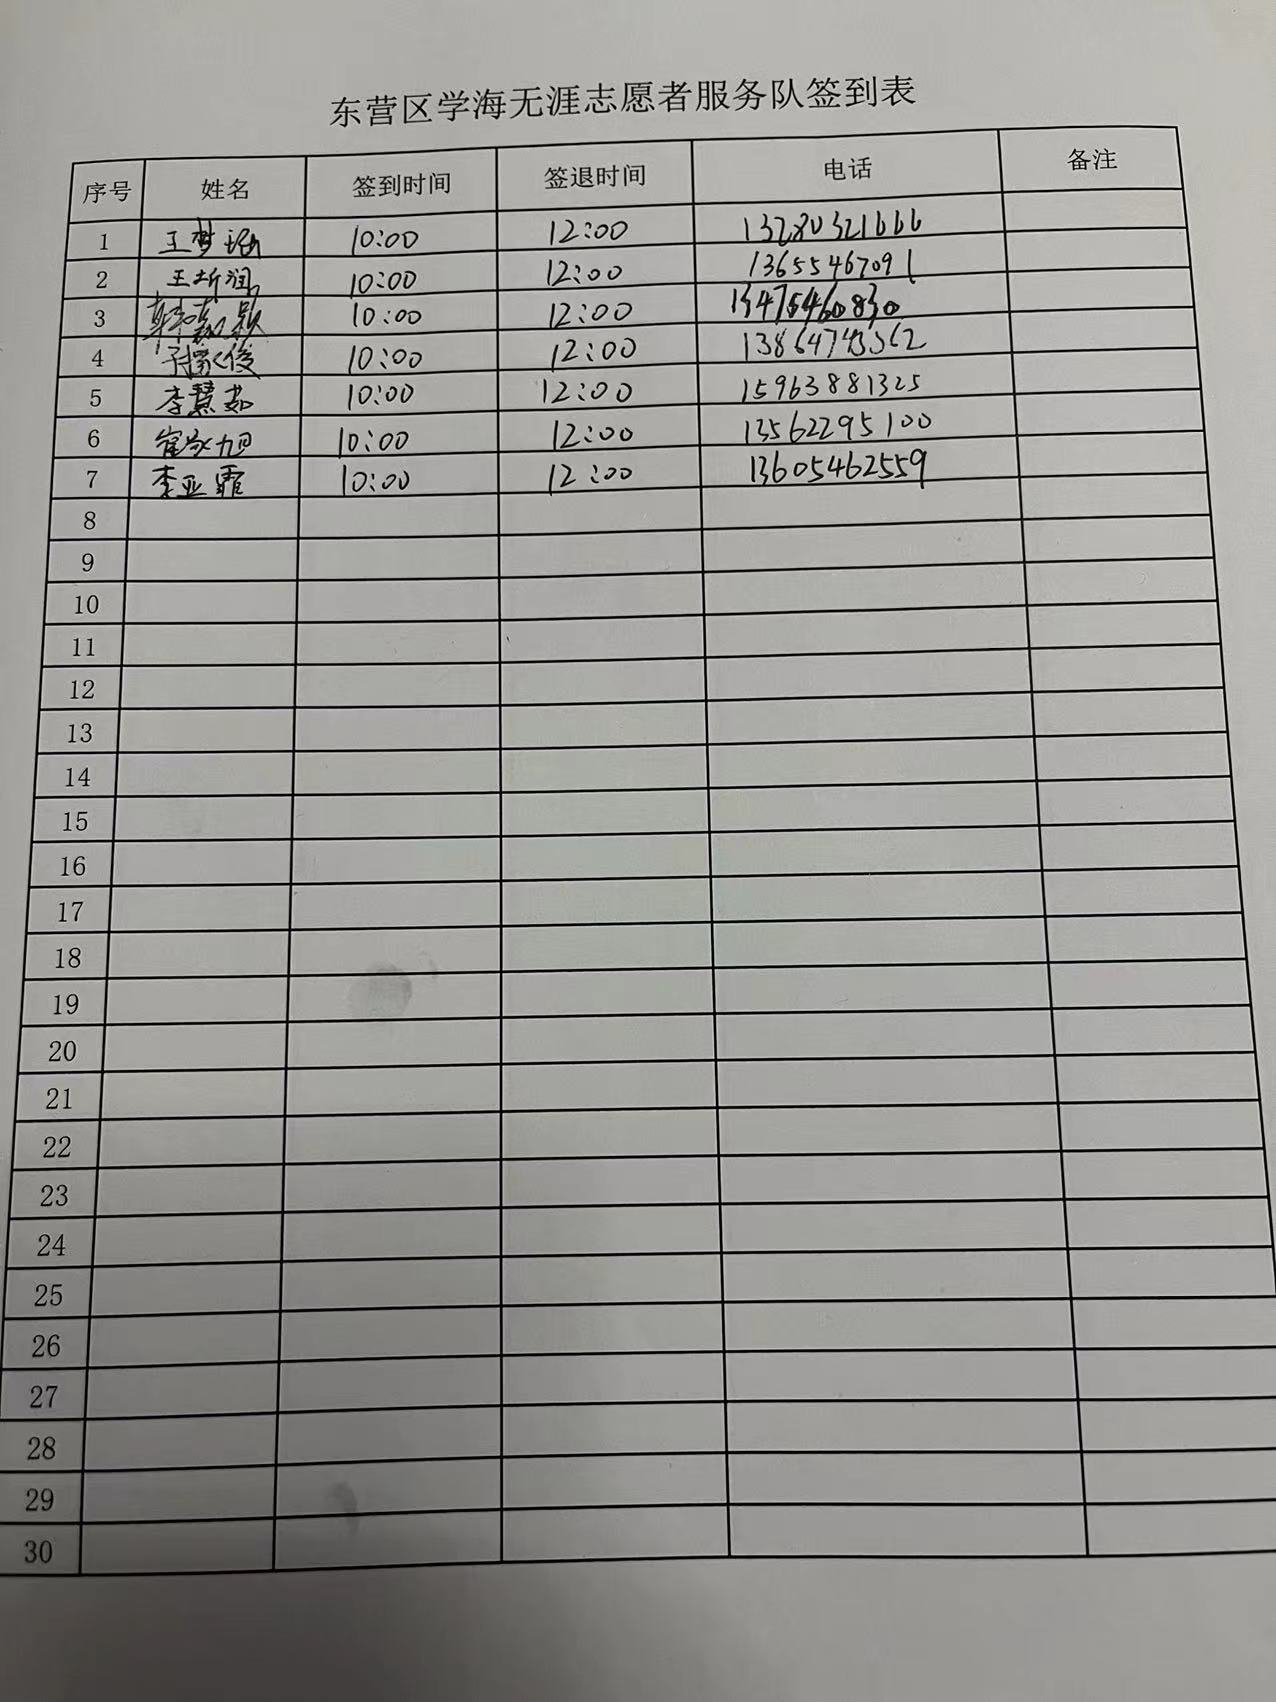 东营区学海无涯志愿者服务队签到表
序号 姓名 签到时间 签退时间 电话 备注
1 王梦瑶 10:00 12:00 13280321666
2 王圻润 10:00 12:00 13655467091
3 10:00 12:00 13475460830
4 家俊 10:00 12:00 13864743562
5 李慧茹 10:00 12:00 15963881325
6 崔家旭 10:00 12:00 13562295100
7 李亚霏 10:00 12:00 13605462559
8
9
10
11
12
13
14
15
16
17
18
19
20
21
22
23
24
25
26
27
28
29
30